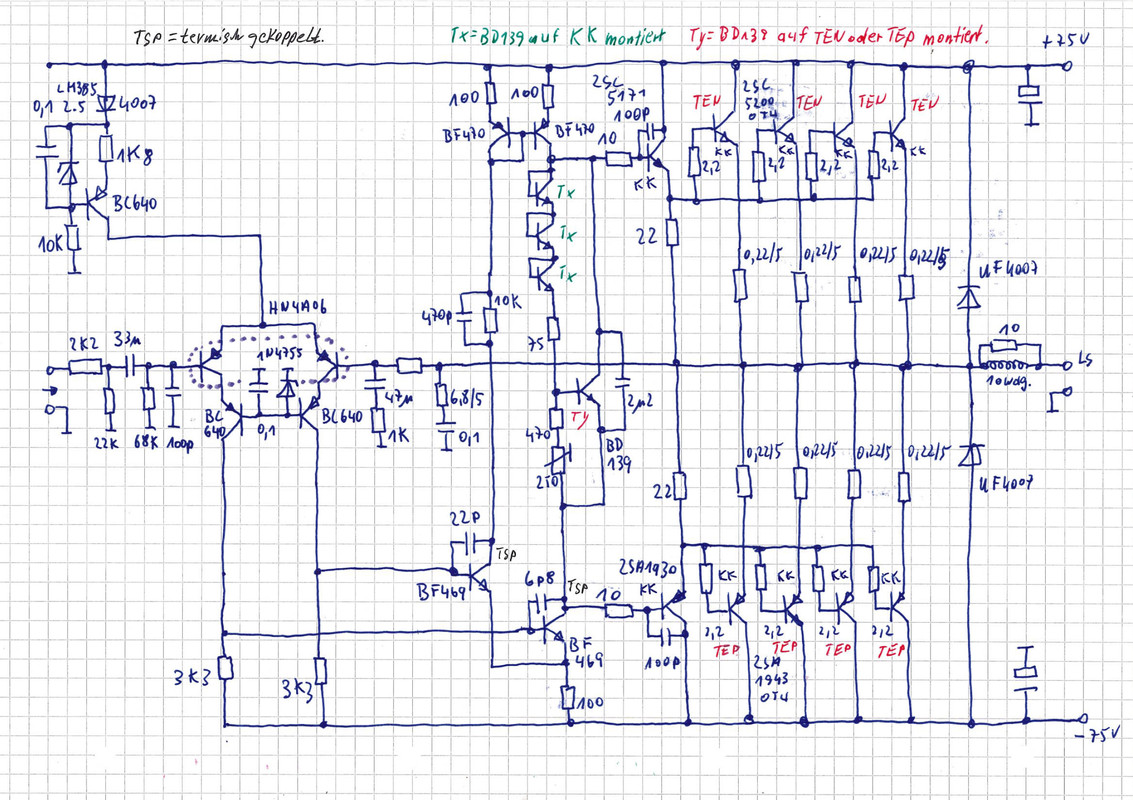 Tsp = termish gekoppelt.
Tx = BD139 auf KK montiert
Ty = BD139 auf TEN oder TEP montiert.
+75V
LM385
0,1 2.5
4007
1K8
BC640
10K
100
100
BF470
BF470
2SC
5171
100p
10
KK
TEN
2SC
5200
OT4
TEN
TEN
TEN
KK
KK
KK
KK
2,2
2,2
2,2
2,2
Tx
Tx
Tx
22
0,22/5
0,22/5
0,22/5
0,22/5
UF4007
HN4A06
470p
10K
75
2K2
33µ
1N4755
10
LS
10wdg.
BC
640
0,1
BC640
47µ
6,8/5
2µ2
TY
22K
68K
100p
1K
0,1
470
250
BD
139
22
0,22/5
0,22/5
0,22/5
0,22/5
UF4007
22P
TSP
BF469
6p8
TSP
2SA1930
10
KK
KK
KK
KK
KK
BF
469
100p
2,2
2,2
2,2
2,2
TEP
TEP
TEP
TEP
2SA
1943
OT4
3K3
3K3
100
-75V